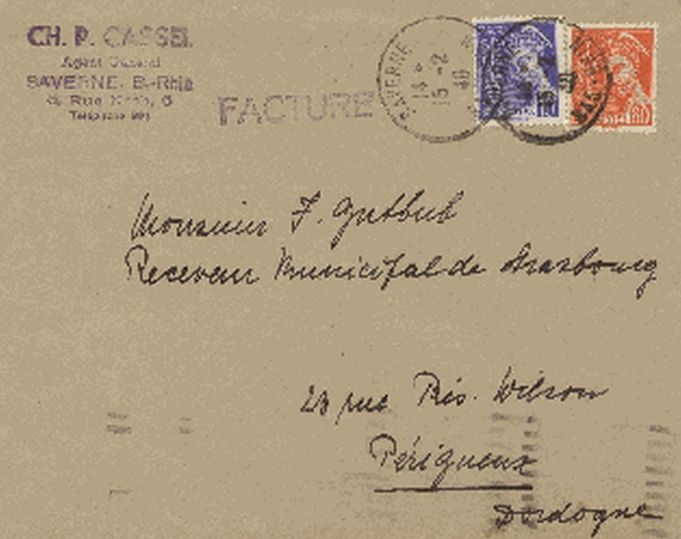 CH. P. CASSEL
Agent Général
SAVERNE, B.-Rhin
Rue
Téléphone
FACTURE
SAVERNE
14
15-2
40
Monsieur F.
Receveur Municipal de Strasbourg
23 rue Prés. Wilson
Périgueux
Dordogne